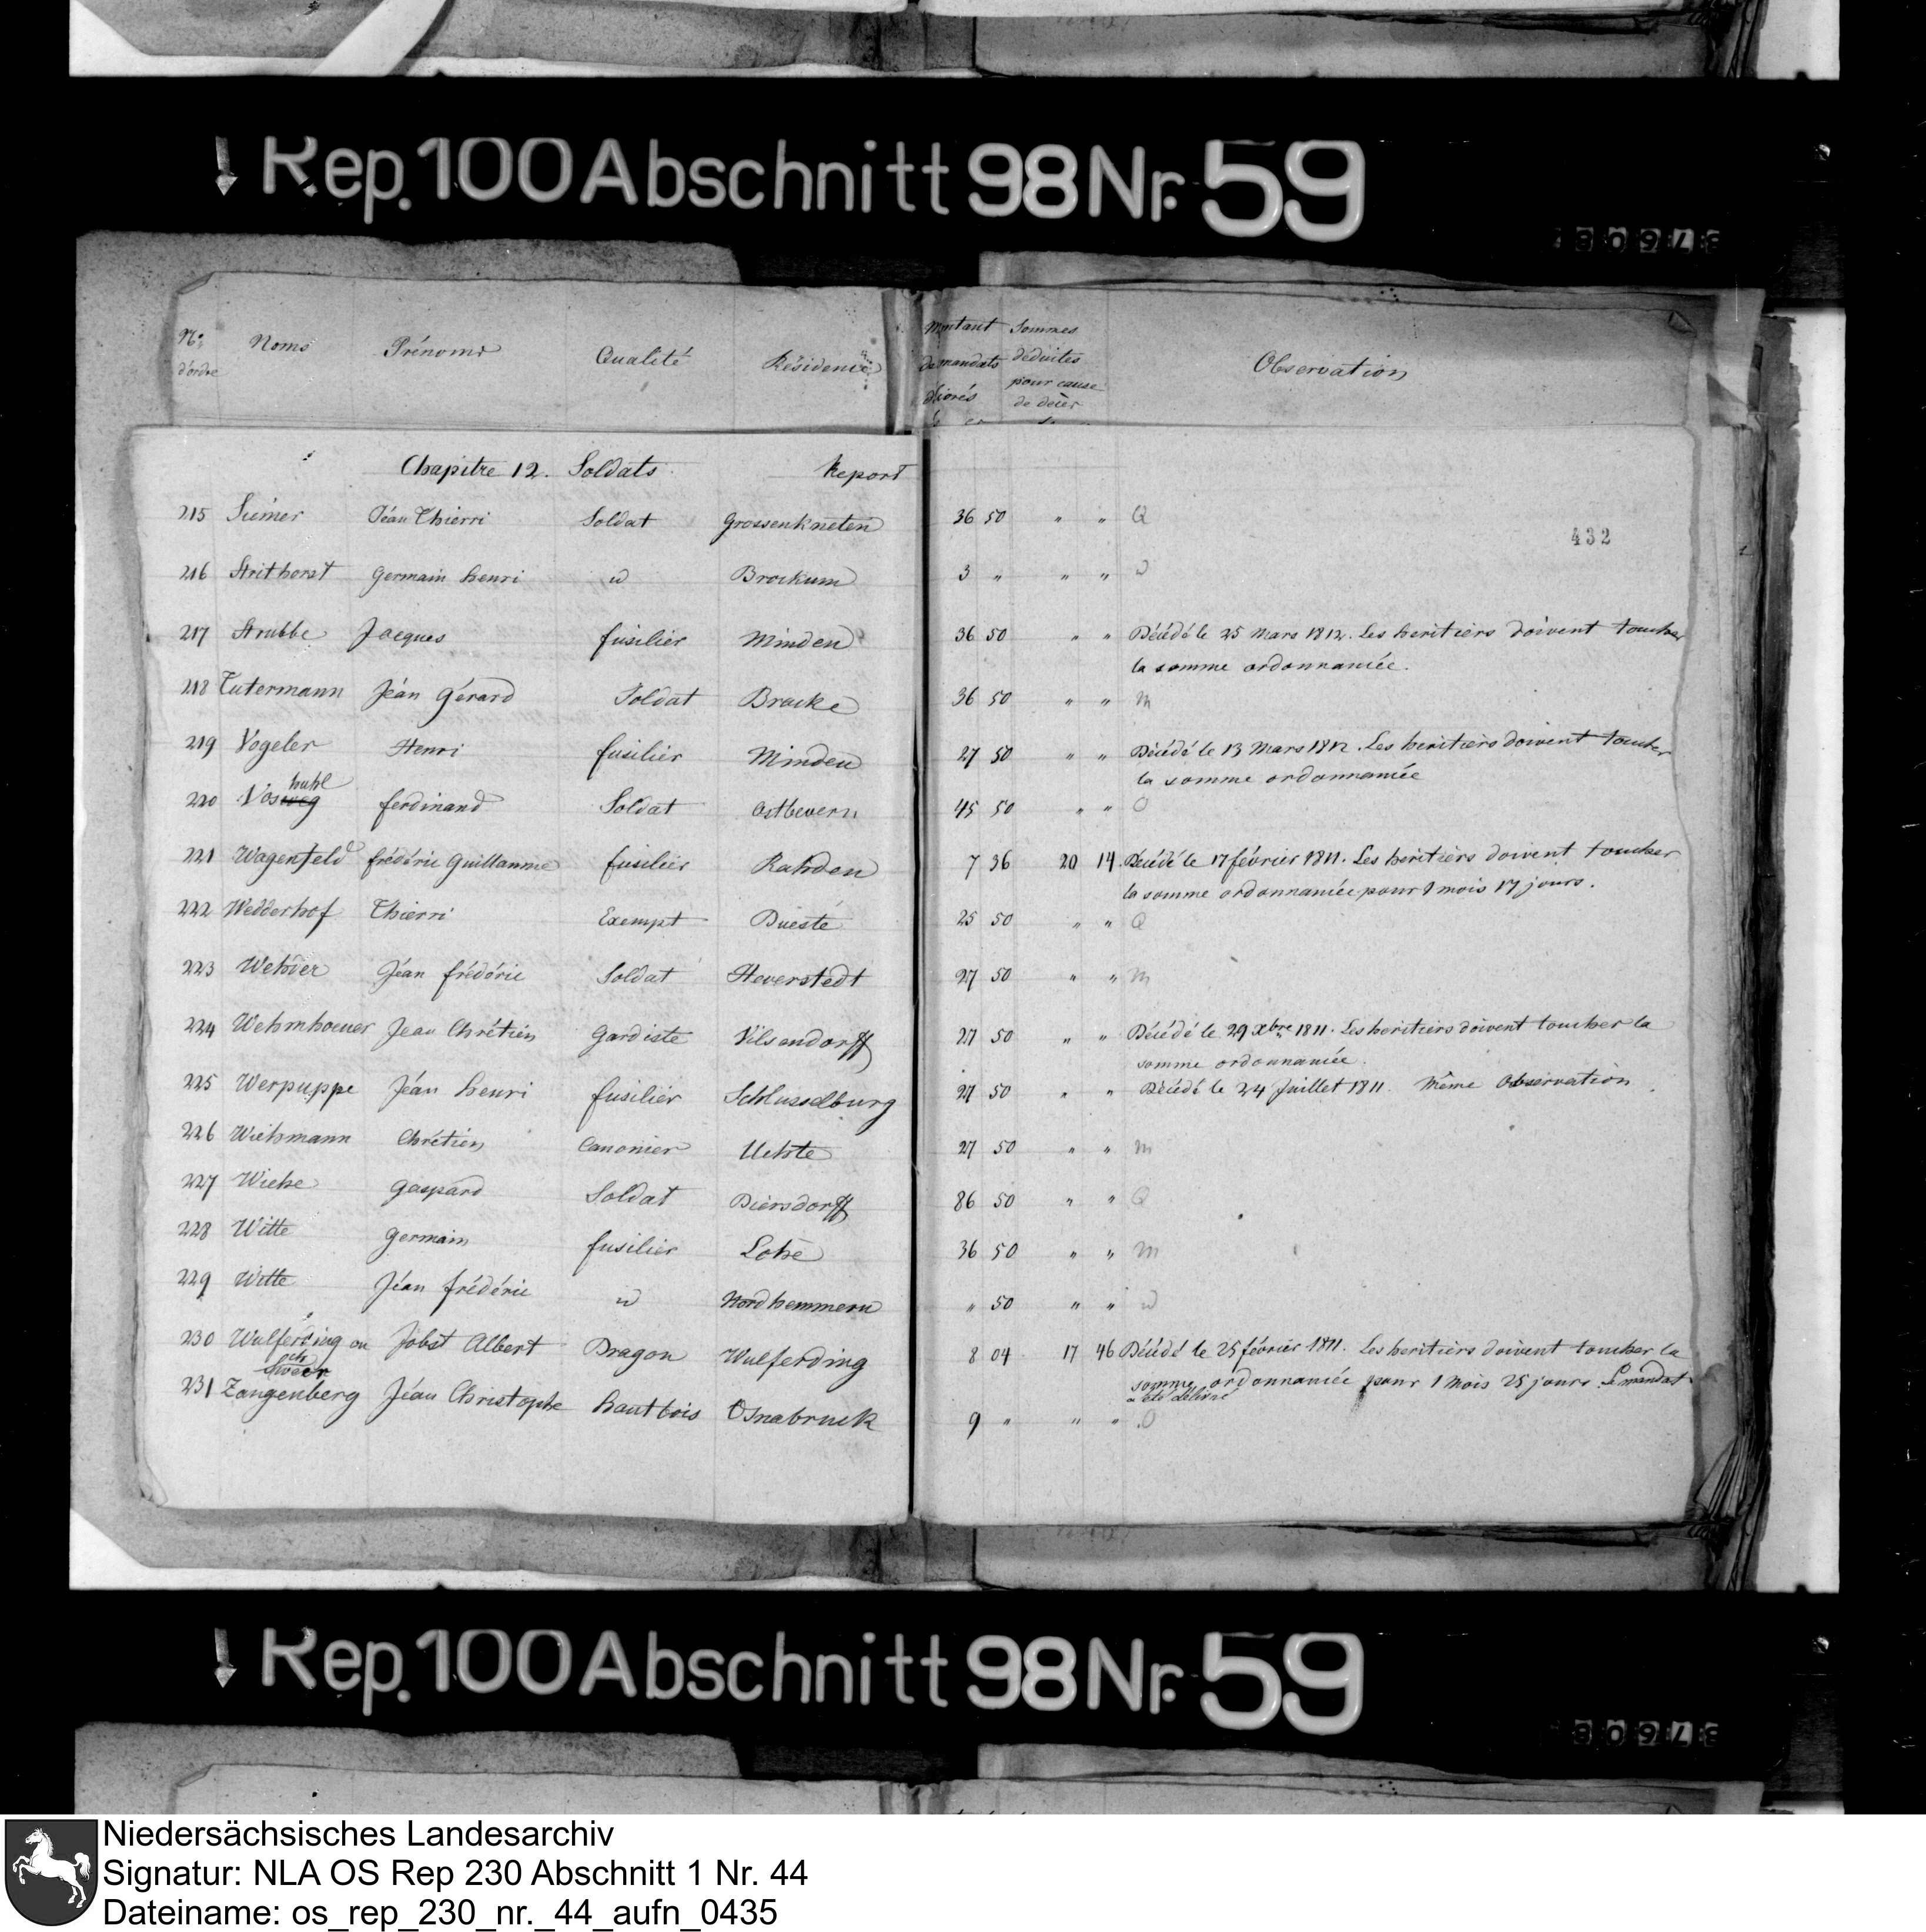 Rep. 100 Abschnitt 98 Nr. 59
Nos d'ordre Noms Prénoms Qualité Résidence Montant de mandats délivrés Sommes déduites pour cause de décès Observation
Chapitre 12. Soldats Report
432
215 Siemer Jéan Thierri Soldat Grossenkneten 36 50 " " Q
216 Strithorst Germain henri id Brockum 3 " " "
217 Strubbe Jacques fusilier Minden 36 50 " " Décédé le 25 Mars 1812. Les heritiers doivent toucher
la somme ordonnancée.
218 Tutermann Jéan Gérard Soldat Bracke 36 50 " " M
219 Vogeler Henri fusilier Minden 27 50 " " Décédé le 13 Mars 1812. Les heritiers doivent toucher
la somme ordonnancée
220 Vosweg huhl ferdinand Soldat Ostbevern 45 50 " " O
221 Wagenfeld frédéric Guillaume fusilier Rahden 7 36 20 14 Décédé le 17 février 1811. Les heritiers doivent toucher
la somme ordonnancée pour 1 mois 17 jours.
222 Wedderhof Thierri Exempt Dueste 25 50 " " Q
223 Wehder Jéan frédéric Soldat Heverstedt 27 50 " " M
224 Wehmhoener Jean Chrétien Gardiste Vilsendorff 27 50 " " Décédé le 29 Xbre 1811. Les heritiers doivent toucher la
somme ordonnancée.
225 Werpuppe Jéan henri fusilier Schlusselburg 27 50 " " Décédé le 24 Juillet 1811. Même Observation
226 Wiehmann Chrétien Canonier Uchte 27 50 " " M
227 Wiehe Gaspard Soldat Diersdorff 86 50 " " Q
228 Witte Germain fusilier Lohe 36 50 " " M
229 Witte Jéan frédéric id Nordhemmern " 50 " " id
230 Wulferding ou Jobst Albert Dragon Wulferding 8 04 17 46 Décédé le 25 février 1811. Les heritiers doivent toucher la
somme ordonnancée pour 1 mois 25 jours. Le mandat
a été délivré
231 Zangenberg Jéan Christophe hautbois Osnabruck 9 " " " O
Rep. 100 Abschnitt 98 Nr. 59
Niedersächsisches Landesarchiv
Signatur: NLA OS Rep 230 Abschnitt 1 Nr. 44
Dateiname: os_rep_230_nr._44_aufn_0435